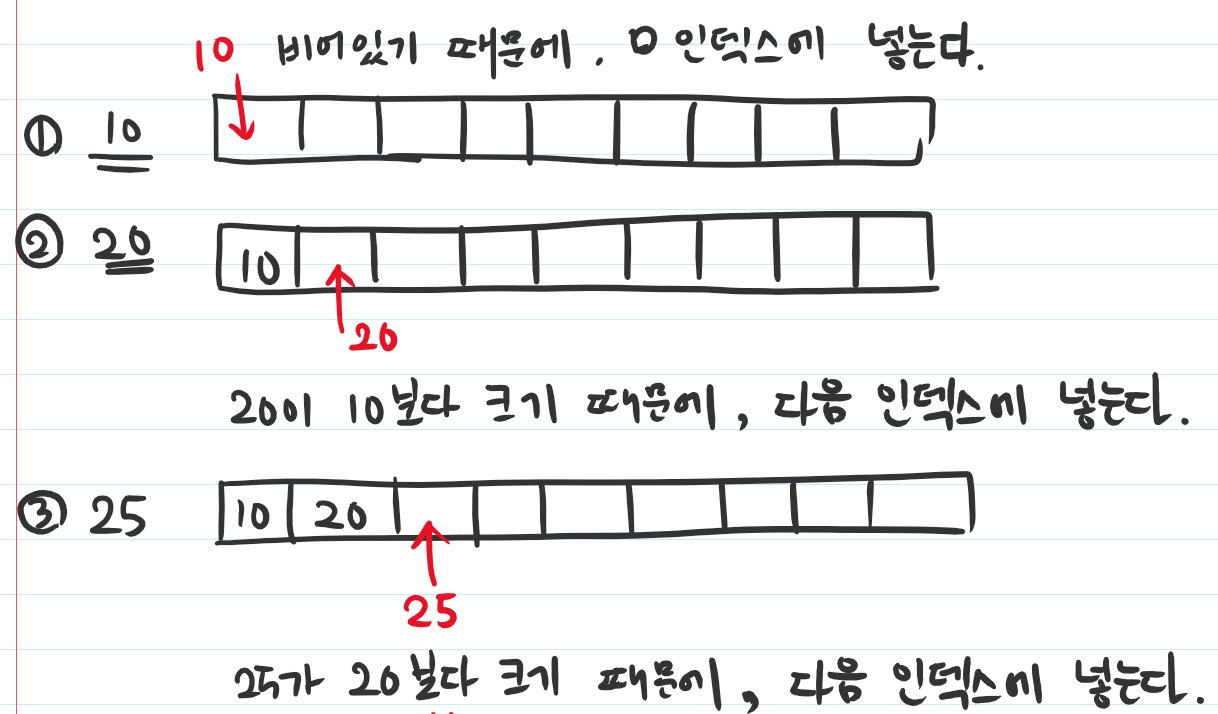 10 비어있기 때문에, 0 인덱스에 넣는다.
① 10
② 20 10
20
20이 10보다 크기 때문에, 다음 인덱스에 넣는다.
③ 25 10 20
25
25가 20보다 크기 때문에, 다음 인덱스에 넣는다.